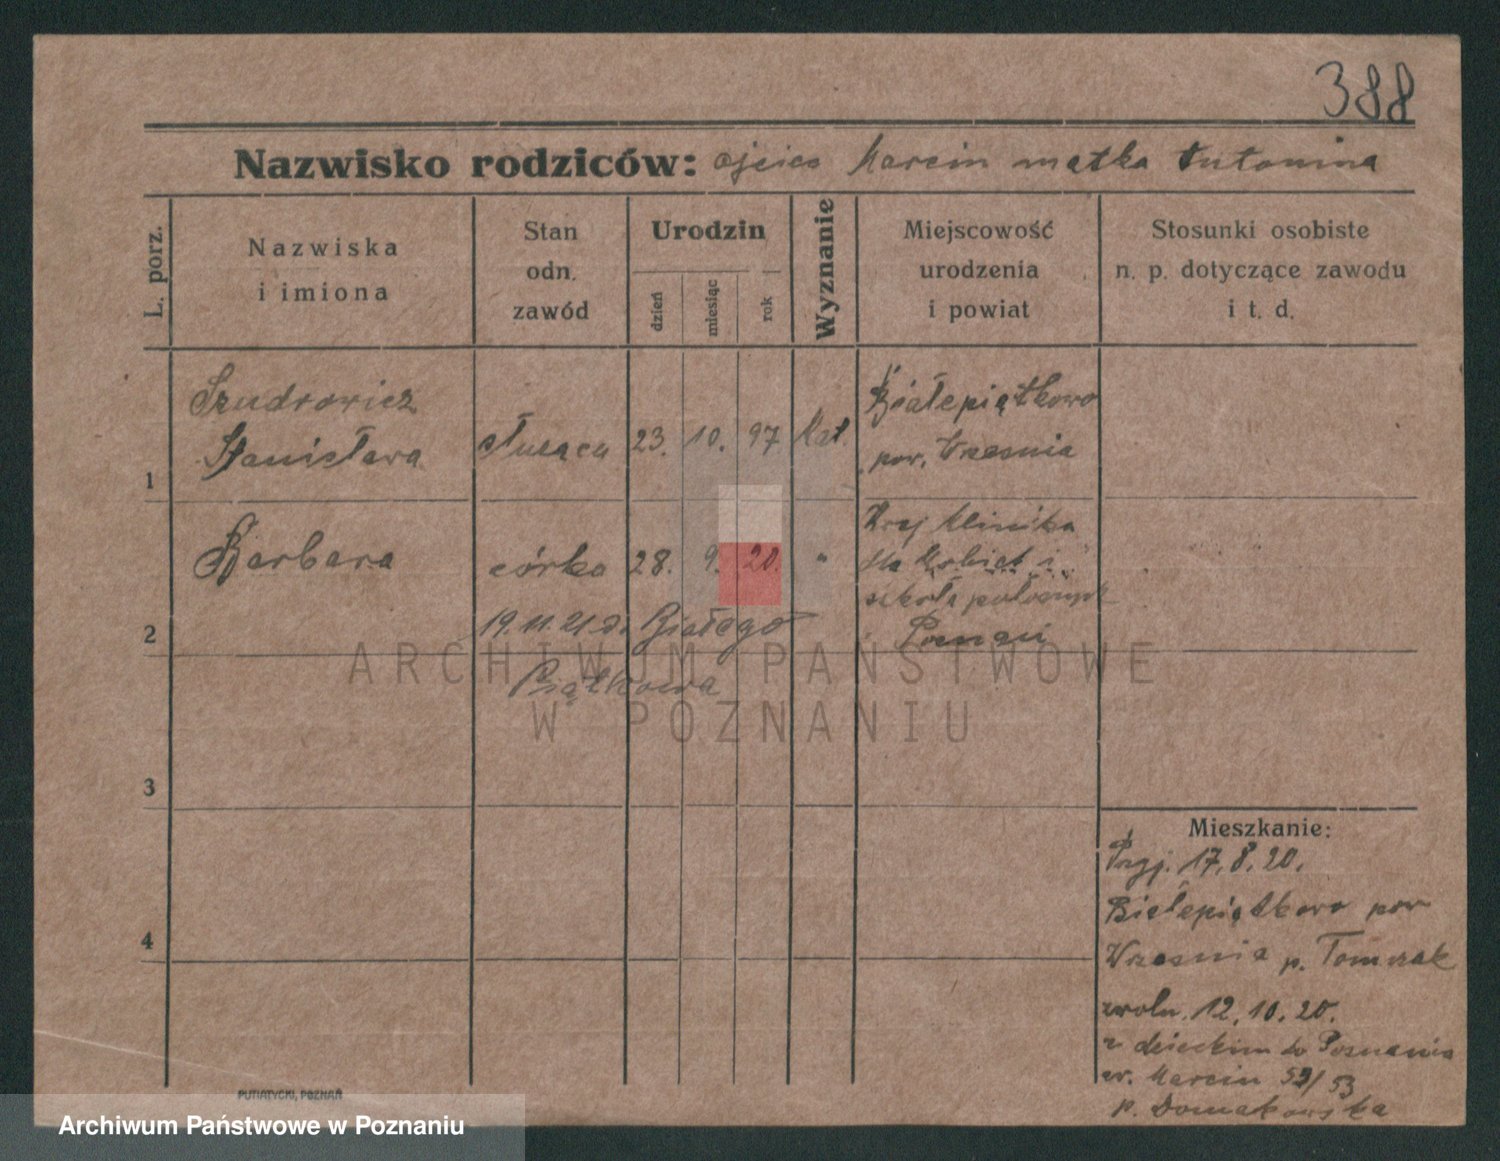 388
Nazwisko rodziców: ojciec Marcin matka Antonina
L. porz.
Nazwiska
i imiona
Stan
odn.
zawód
Urodzin
dzień
miesiąc
rok
Wyznanie
Miejscowość
urodzenia
i powiat
Stosunki osobiste
n. p. dotyczące zawodu
i t. d.
1
Stanisława
służąca 23. 10. 97 Kat.
Białepiątkowo
pow. Września
2
Barbara
córka 28. 9. 20. "
Kraj Klinika
dla Kobiet i
szkoła położnych
Poznań
19.11.21 d. Białego
Piątkowa
3
4
Mieszkanie:
Przyj. 17.8.20.
Białepiątkowo pow
Września p. Tomczak
zwoln. 12.10.20.
z dzieckiem do Poznania
św. Marcin 52/53
p.
PUTIATYCKI, POZNAŃ
ARCHIWUM PAŃSTWOWE
W POZNANIU
Archiwum Państwowe w Poznaniu